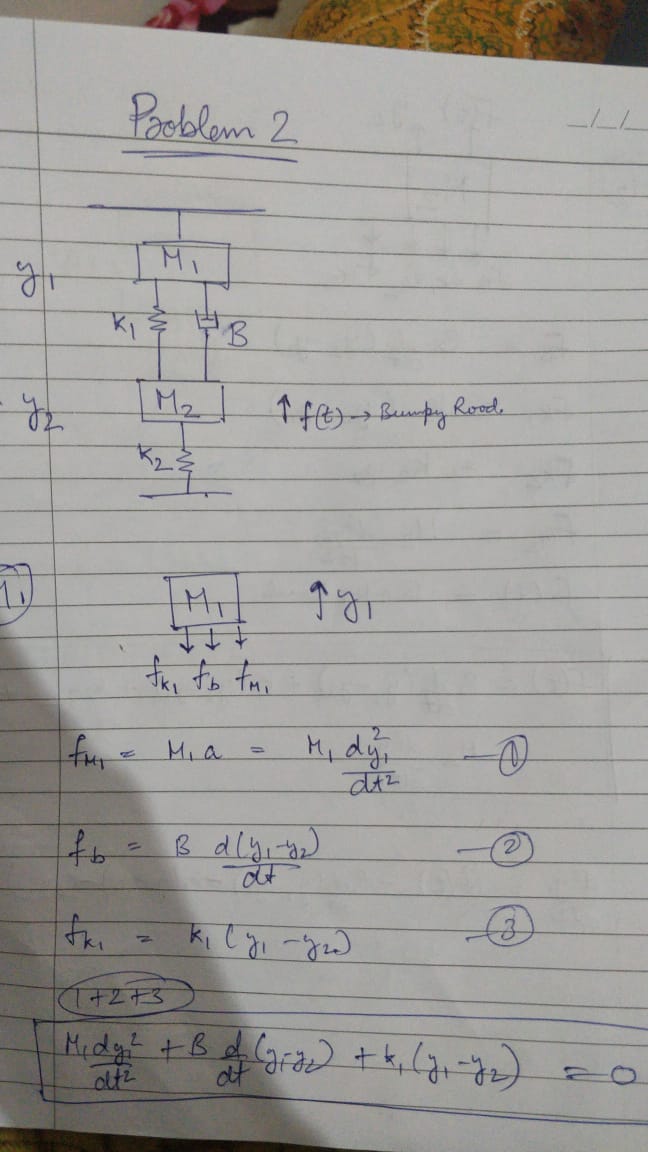 Problem 2
_/_/_
M₁
y₁
K₁
B
M₂
y₂
↑ f(t) → Bumpy Road.
K₂
M₁
↑ y₁
f_K₁ f_b f_M₁
f_M₁ = M₁ a = M₁ dy₁²/dt² —①
f_b = B d(y₁-y₂)/dt —②
f_K₁ = K₁ (y₁ - y₂) —③
1+2+3
M₁ dy₁²/dt² + B d/dt (y₁-y₂) + K₁ (y₁-y₂) = 0